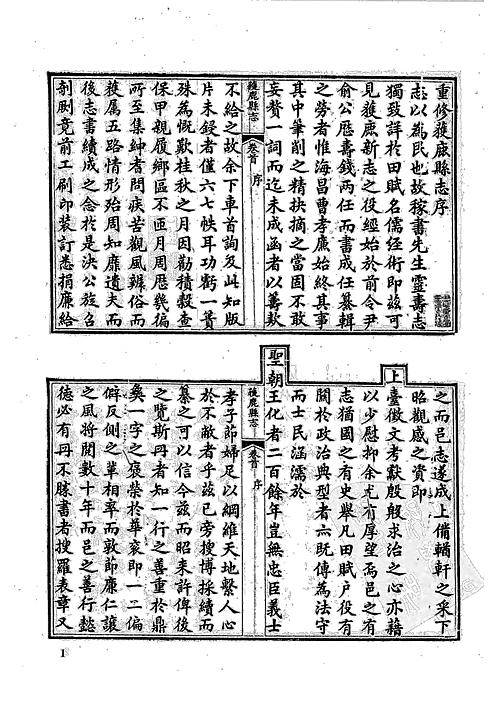 重修獲鹿縣志序
志以為民也故稼書先生靈壽志
獨致詳於田賦名儒經術即茲可
見獲鹿新志之役經始於前令尹
俞公歷壽錢兩任而書成任纂輯
之勞者惟海昌曹孝廉始終其事
其中筆削之精抉摘之當固不敢
妄贅一詞而迄未成函者以善欵
獲鹿縣志
卷首 序
不給之故余下車首詢及此知版
片未鋟者僅六七帙耳功虧一簣
殊為慨歎桂秋之月因勸積穀查
保甲親履鄉區不匝月周歷幾徧
所至集紳耆問疾苦觀風辨俗而
獲属五路情形殆周知靡遺夫而
後志書續成之念於是決公旋召
剞劂竟前工刷印裝訂悉捐廉給
之而邑志遂成上備輶軒之采下
昭觀感之資即
上
臺徵文考獻殷殷求治之心亦藉
以少慰抑余尤有厚望焉邑之有
志猶國之有史舉凡田賦户役有
關於政治典型者六既傳為法守
而士民涵濡於
聖朝王化者二百餘年豈無忠臣義士
獲鹿縣志
卷首 序
孝子節婦足以綱維天地繫人心
於不敝者乎茲已旁搜博採續而
纂之可以信今茲而昭来許俾後
之覽斯冊者知一行之善重於鼎
彝一字之褒榮於華衮即一二偏
僻反側之輩相率而敦節廉仁讓
之風將閱數十年而邑之善行懿
德必有丹不勝書者搜羅表章又
1